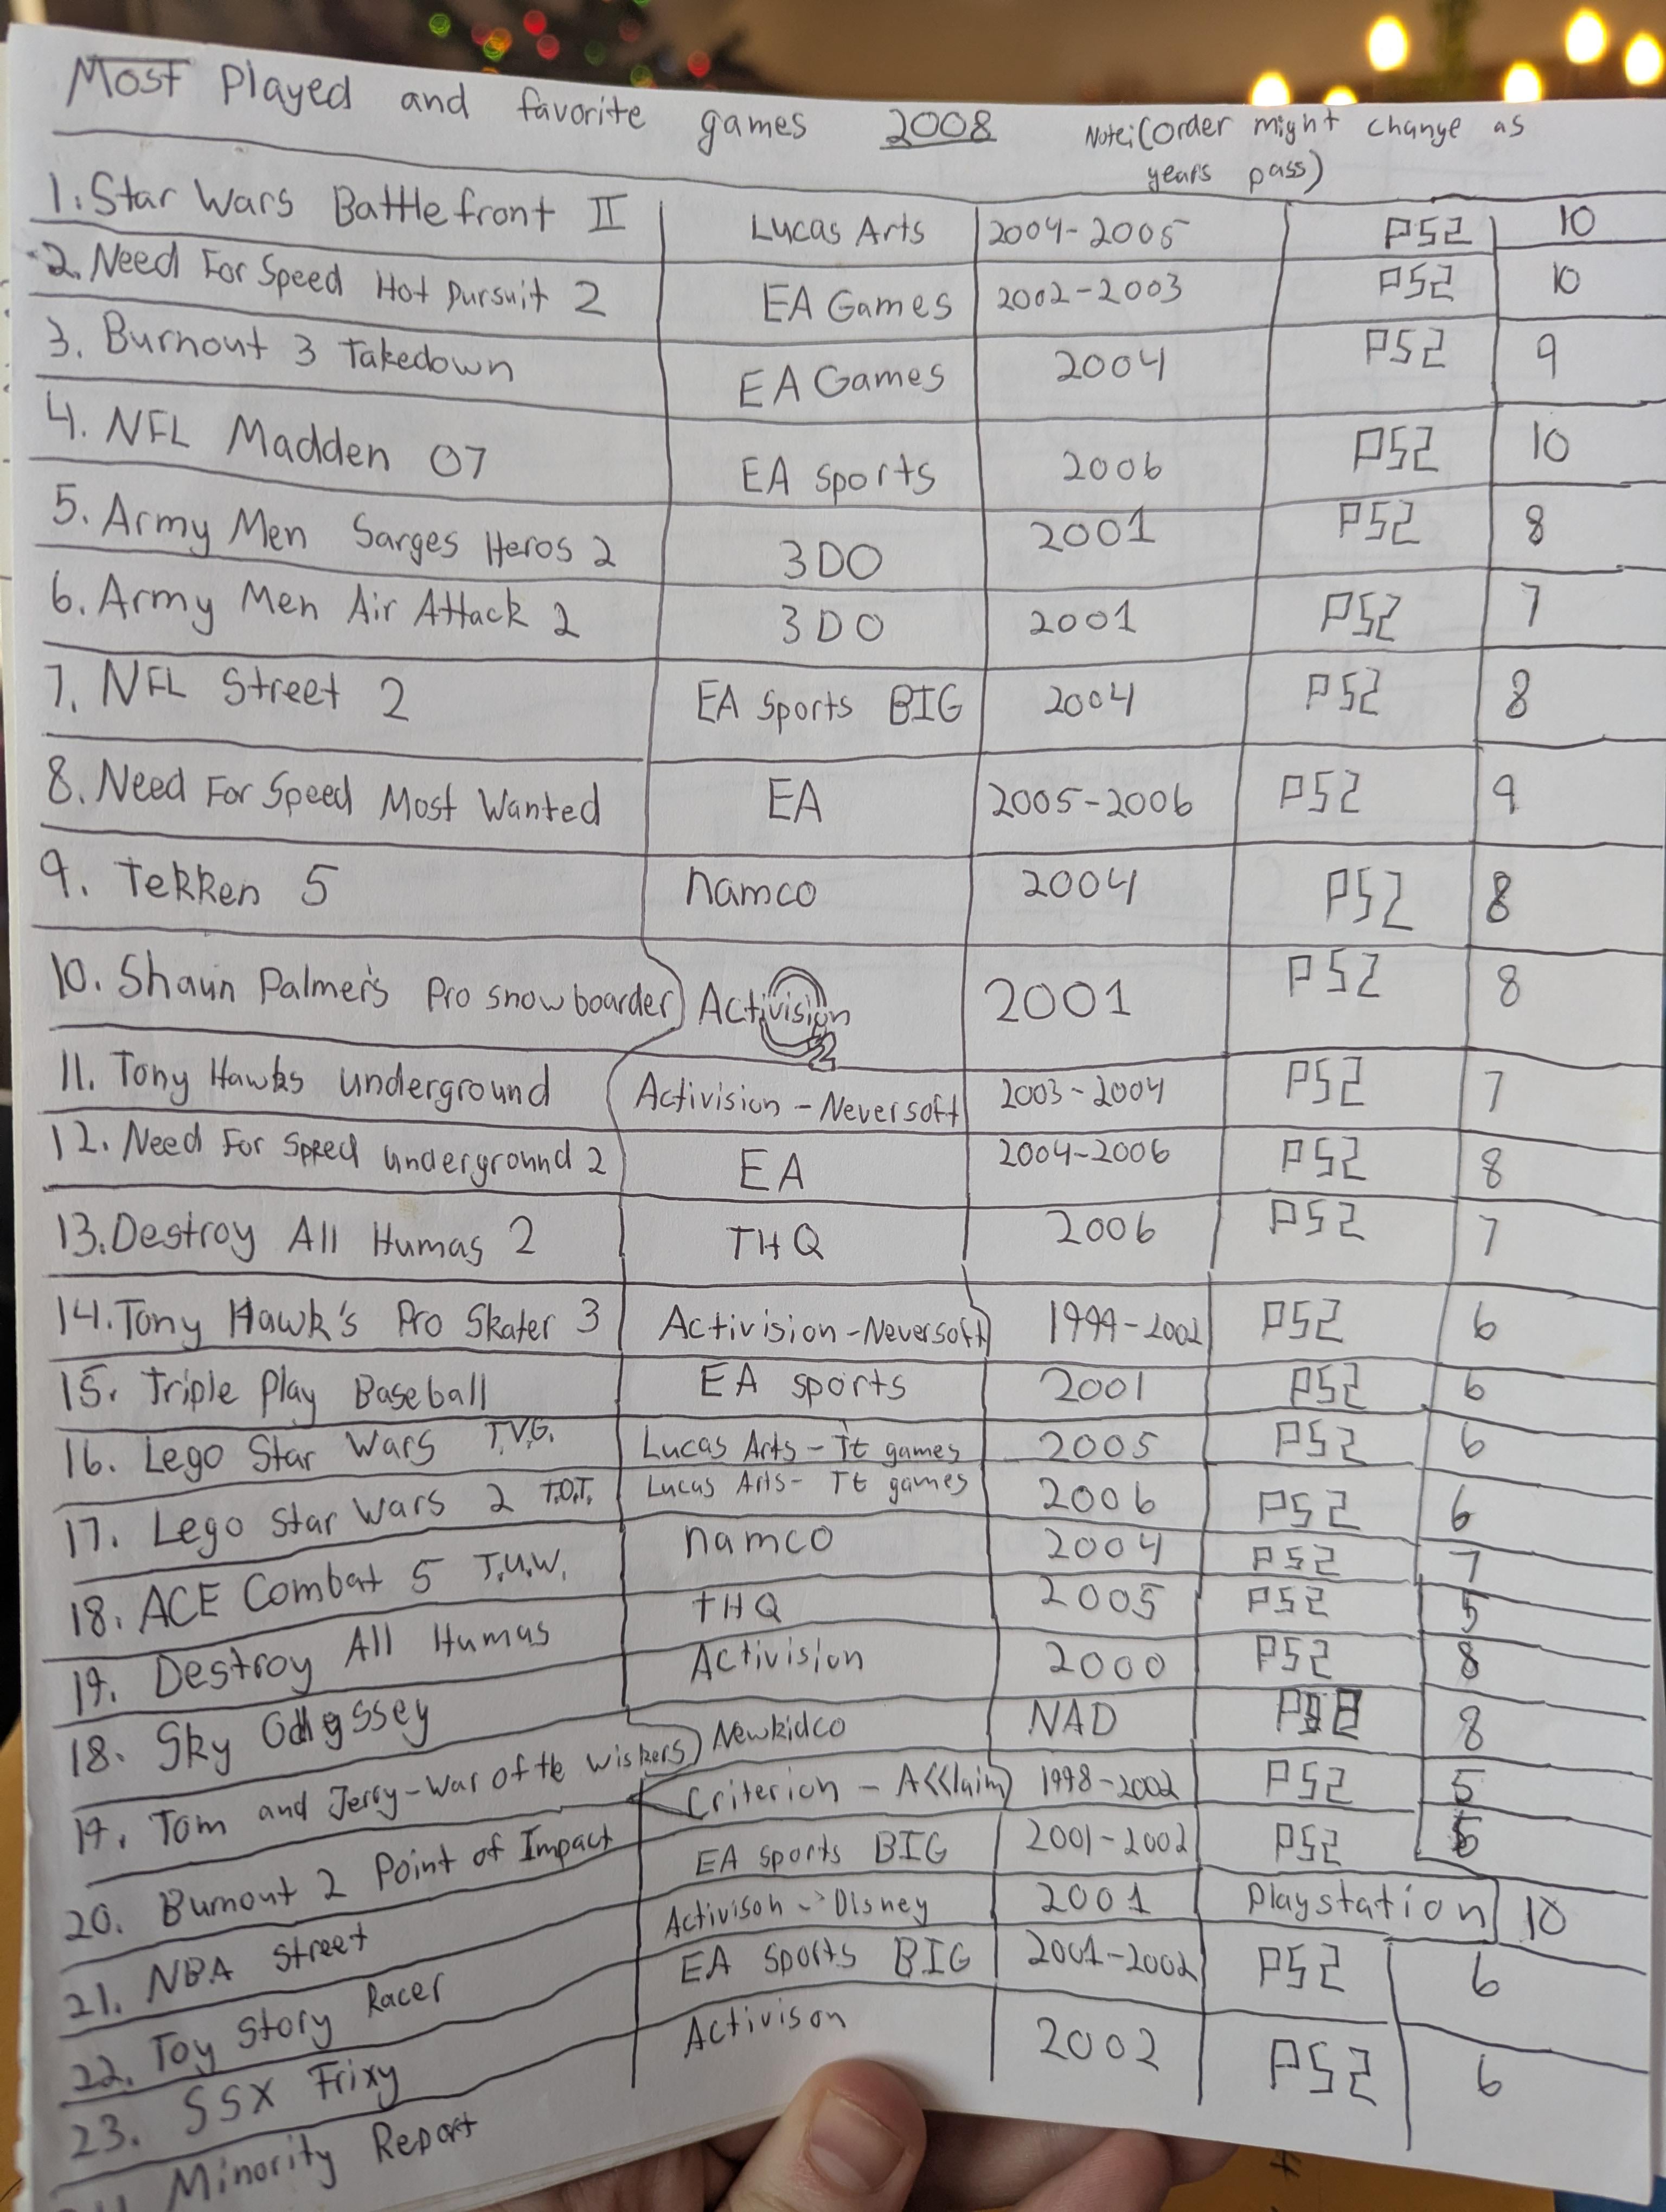 Most Played and favorite games 2008 Note:(order might change as
years pass)
1. Star Wars Battlefront II Lucas Arts 2004-2005 PS2 10
2. Need For Speed Hot Pursuit 2 EA Games 2002-2003 PS2 10
3. Burnout 3 Takedown EA Games 2004 PS2 9
4. NFL Madden 07 EA sports 2006 PS2 10
5. Army Men Sarges Heros 2 3DO 2001 PS2 8
6. Army Men Air Attack 2 3DO 2001 PS2 7
7. NFL Street 2 EA Sports BIG 2004 PS2 8
8. Need For Speed Most Wanted EA 2005-2006 PS2 9
9. Tekken 5 namco 2004 PS2 8
10. Shaun Palmer's Pro snowboarder Activision 2001 PS2 8
11. Tony Hawks underground Activision-Neversoft 2003-2004 PS2 7
12. Need For Speed underground 2 EA 2004-2006 PS2 8
13. Destroy All Humas 2 THQ 2006 PS2 7
14. Tony Hawk's Pro Skater 3 Activision-Neversoft 1999-2002 PS2 6
15. Triple Play Baseball EA sports 2001 PS2 6
16. Lego Star Wars T.V.G. Lucas Arts - Tt games 2005 PS2 6
17. Lego Star Wars 2 T.O.T. Lucas Arts- Tt games 2006 PS2 6
18. ACE Combat 5 T.U.W. namco 2004 PS2 7
19. Destroy All Humas THQ 2005 PS2 5
18. Sky Odyssey Activision 2000 PS2 8
19. Tom and Jerry-War of the Wiskers Newkidco NAD PS2 8
20. Burnout 2 Point of Impact Criterion - Acclaim 1998-2002 PS2 5
21. NBA Street EA Sports BIG 2001-2002 PS2 5
22. Toy Story Racer Activison - Disney 2001 Playstation 10
23. SSX Trixy EA Sports BIG 2001-2002 PS2 6
Minority Report Activison 2002 PS2 6